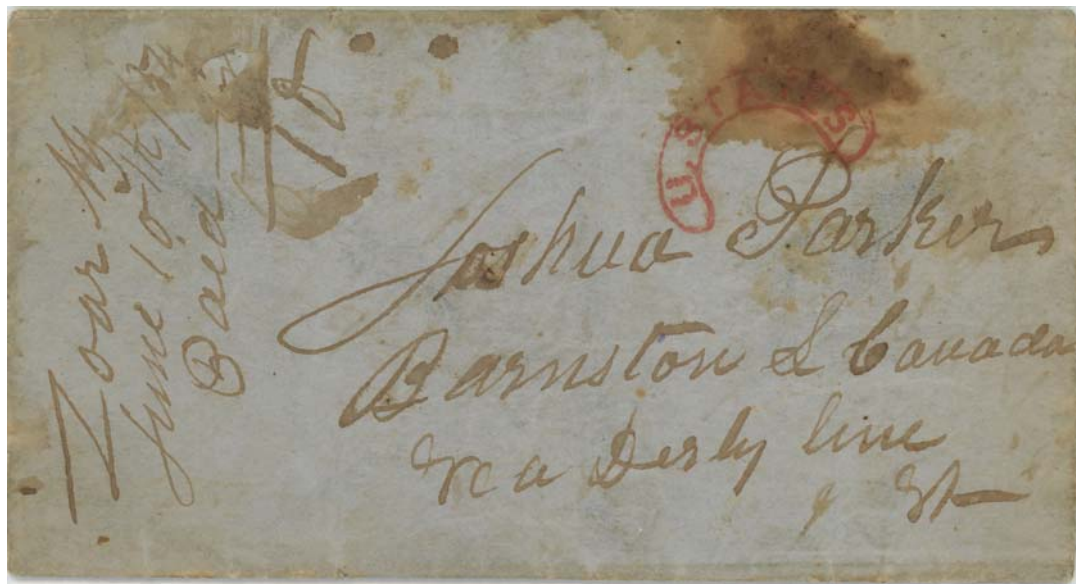 Zoar
June 10th /54
Paid
U. STATES
Joshua Parker
Barnston L Canada
Via Derby line
Vt